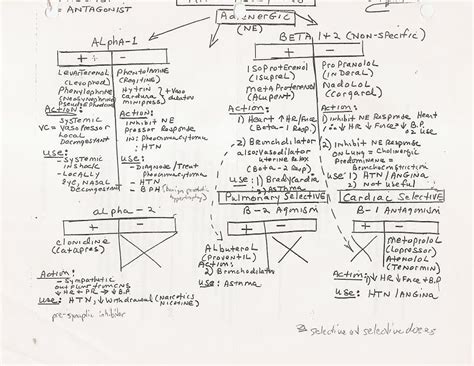 = ANTAGONIST
Adrenergic
(NE)
ALPHA-1
+ -
Levarterenol
(Levophed)
Phenylephrine
(Neosynephrine)
Pseudoephedrine
Action:
- Systemic
VC = Vasopressor
- Locally
Decongestant
Use:
- Systemic
in shock
- Locally
Eye, Nasal
Decongestant
Phentolamine
(Regitine)
Hytrin
Cardura
minipress
Vaso
dilators
Action:
Inhibit NE
Pressor Response
in Pheocromocytoma
↓ HTN
Use:
- Diagnose/Treat
Pheocromocytoma
- HTN
- BPH (benign prostatic
hypertrophy)
BETA 1+2 (NON-Specific)
+ -
Isoproterenol
(Isuprel)
Metaproterenol
(Alupent)
Action:
1) Heart ↑HR/Force
(Beta-1 Resp)
2) Bronchodilator
also vasodilator
uterine Relax
(Beta-2 Resp)
Use: 1) Bradycardia
2) Asthma
Propranolol
(Inderal)
Nadolol
(Corgard)
Action:
1) Inhibit NE Response Heart
∴ ↓HR ↓Force + ↓B.P
↓ O2 use
2) Inhibit NE Response
on Lung = Cholinergic
Predominance =
Bronchoconstriction
Use: 1) HTN/Angina
2) Not useful
alpha-2
+ -
Clonidine
(Catapres)
Action:
- Sympathetic
outflow from CNS
↓HR + PR → ↓B.P
Use: HTN, ↓ Withdrawal (narcotics
nicotine)
pre-synaptic inhibitor
Pulmonary Selective
B-2 Agonism
+ -
Albuterol
(Proventil)
Action:
2) Bronchodilator
Use: Asthma
Cardiac Selective
B-1 Antagonism
+ -
Metoprolol
(Lopressor)
Atenolol
(Tenormin)
Action: ↓HR ↓Force + B.P
Use: HTN/Angina
selective at selective doses